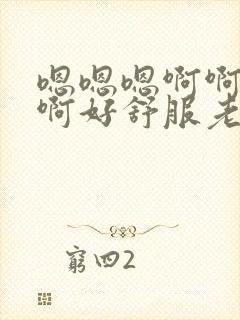 嗯嗯嗯啊啊
啊好舒服老
窮四2